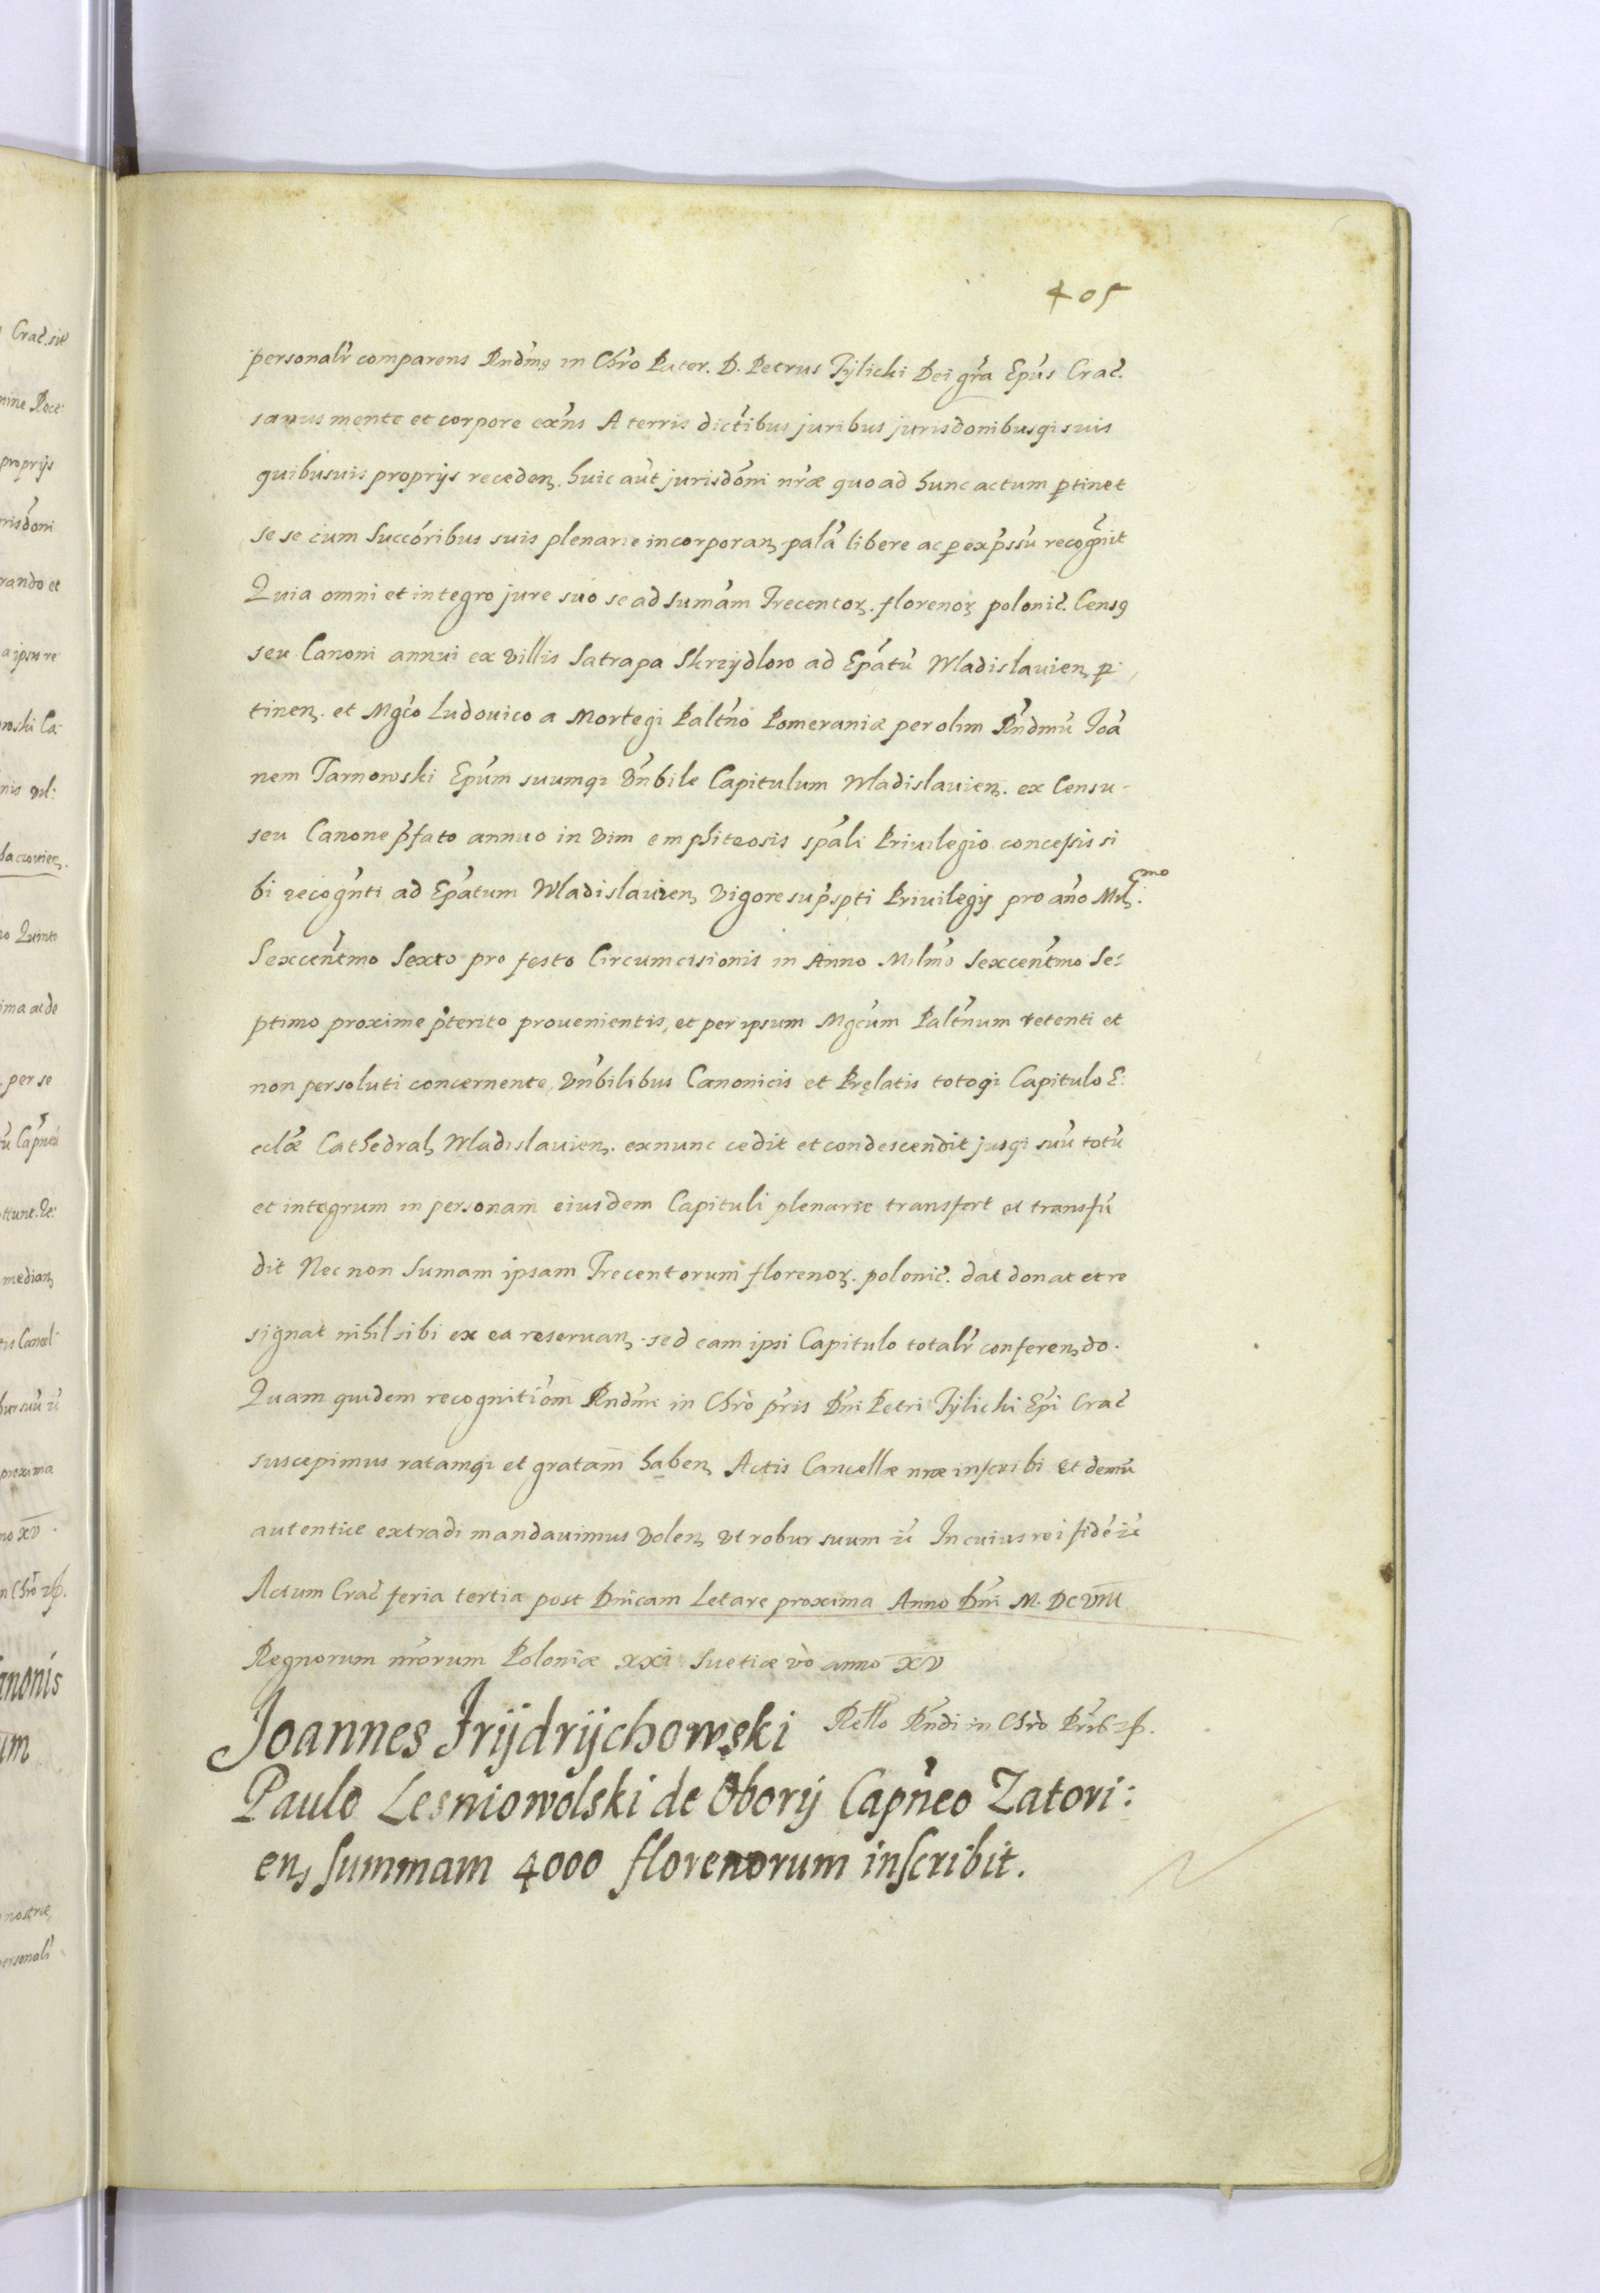 405
personalr comparens Rndm9 in Chro Pater. D. Petrus Tÿlicki Dei gra Epus Crac.
sanus mente et corpore exns A terris dictibus juribus jurisdonibusqi suis
quibusuis proprÿs receden. huic aut jurisdoni nræ quo ad hunc actum ptinet
se se cum Succoribus suis plenarie incorporan palā libere ac p expssū recognit
Quia omni et integro jure suo se ad Sumam Trecentor. florenor polonic. Census
seu Canoni annui ex villis Satrapa Skrzÿdlow ad Epatū Wladislauien p
tinen. et Mgco Ludovico a Mortegi Paltno Pomeraniæ per olim Rndmū Joā
nem Tarnowski Epum suumqi Vnbile Capitulum Wladislauien. ex Censu
seu Canone pfato annuo in vim emphiteosis spali Priuilegio concessis si
bi recognti ad Epatum Wladislauien vigore supspti Priuilegÿ pro año Mil.mo
Sexcentmo Sexto pro festo Circumcisionis in Anno Milmo Sexcentmo Se:
ptimo proxime pterito prouenientis, et per ipsum Mgcum Paltnum retenti et
non persoluti concernente, Vnbilibus Canonicis et Pręlatis totoqi Capitulo E:
eclæ Cathedral Wladislauien. exnunc cedit et condescendit jusqi suū totū
et integrum in personam eiusdem Capituli plenarie transfert et transfū
dit Nec non Sumam ipsam Trecentorum florenor. polonic. dat donat et re
signat nihil sibi ex ea reseruan. sed eam ipsi Capitulo totalr conferendo.
Quam quidem recognitiom Rndmi in Chro pris Dni Petri Tÿlicki Epi Crac
suscepimus ratamqi et gratam haben Actis Cancellæ nræ inscribi et demū
autentice extradi mandauimus volen vt robur suum zc In cuius rei fidē zc
Actum Crac feria tertia post Dnicam Letare proxima Anno Dni M. DC VIII
Regnorum nrorum Poloniæ XXI Suetiæ vo anno XV
Rello Rndi in Chro Pris zp.
Joannes Frÿdrÿchowski
Paulo Lesniowolski de Oborÿ Capneo Zatori:
en, summam 4000 florenorum inscribit.